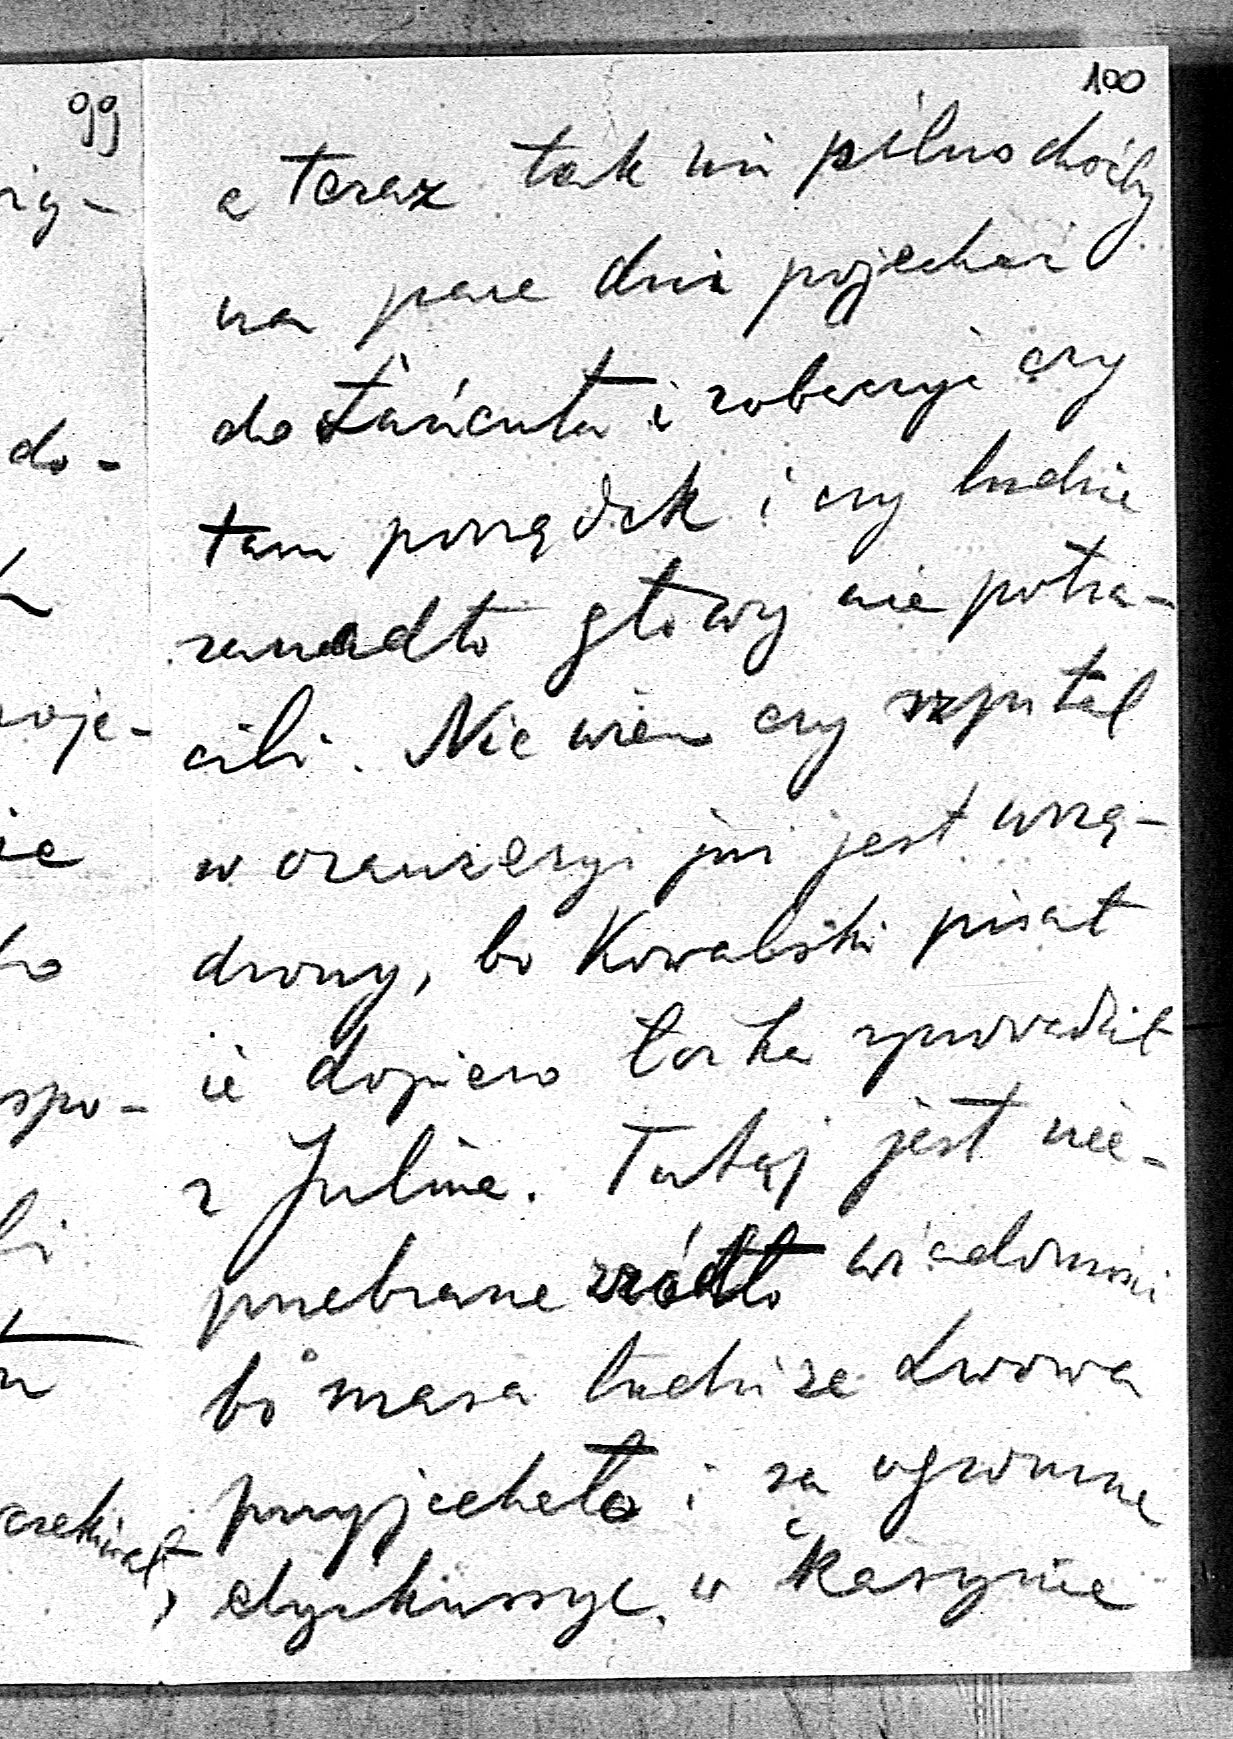 99
100
ią-
do-
oje-
ie
spo-
a teraz tak mi pilno choćby
na parę dni pojechać
do Łańcuta i zobaczyć czy
tam porządek i czy ludzie
zanadto głowy nie potra-
cili. Nie wiem czy szpital
w oranżeryi już jest urzą-
dzony, bo Kowalski pisał
że dopiero łóżka sprowadził
z Julina. Tutaj jest nie-
przebrane źródło wiadomości
bo masa ludzi ze Lwowa
przyjechało i są ogromne
dyskussye w Kasynie